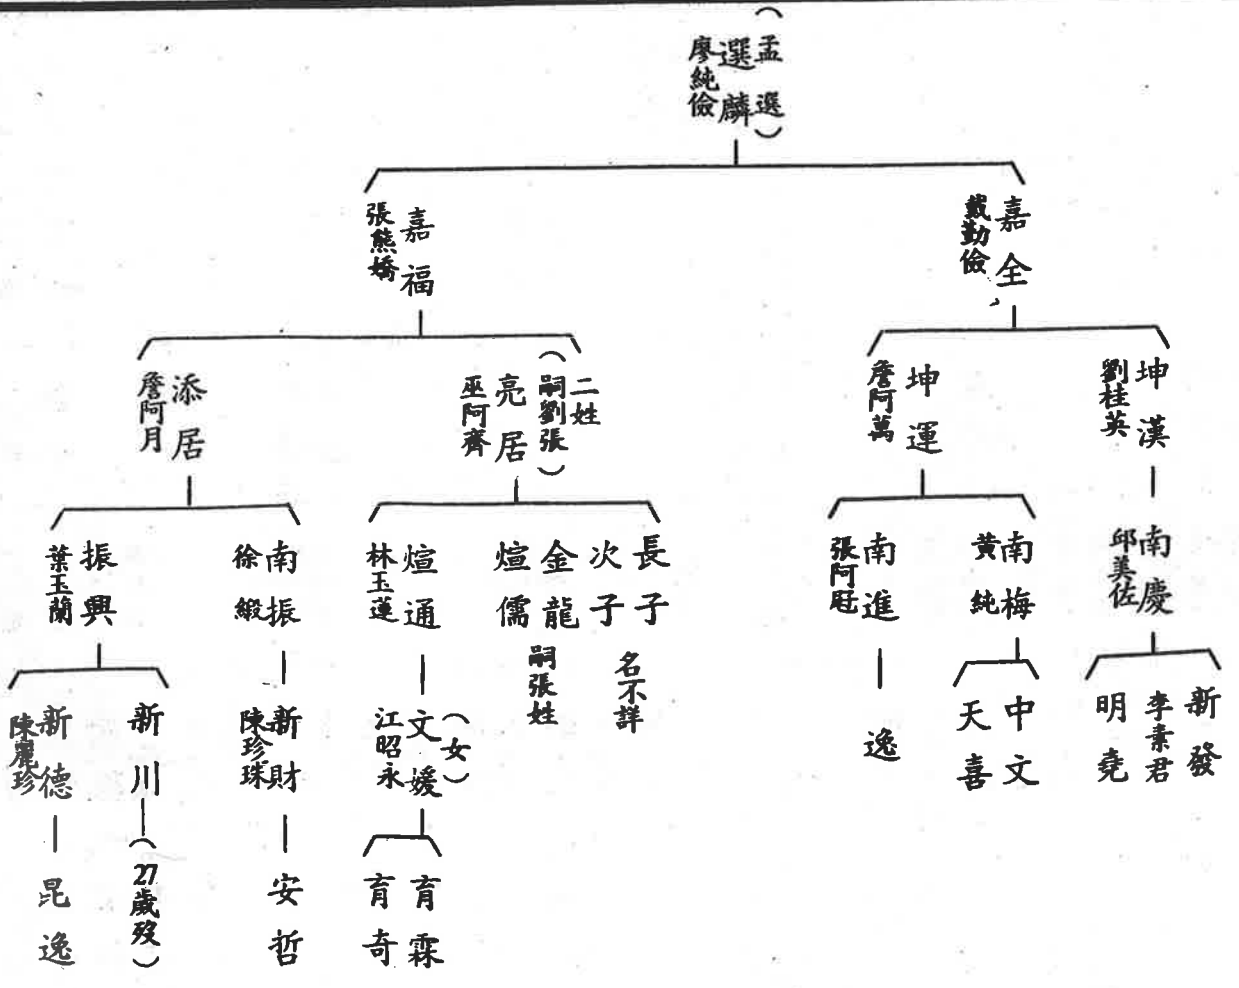 （孟選）
選麟
廖純儉
嘉全
戴勤儉
嘉福
張熊嬌
坤漢
劉桂英
坤運
詹阿萬
二姓
（嗣劉張）
亮居
巫阿齊
添居
詹阿月
南慶
邱美佐
南梅
黃純
南進
張阿冠
長子
次子
名不詳
金龍
嗣張姓
煊儒
煊通
林玉蓮
南振
徐緞
振興
葉玉蘭
新發
李素君
明堯
中文
天喜
逸
（女）
文媛
江昭永
新財
陳珍珠
新川
（27歲歿）
新德
陳麗珍
育霖
育奇
安哲
昆逸